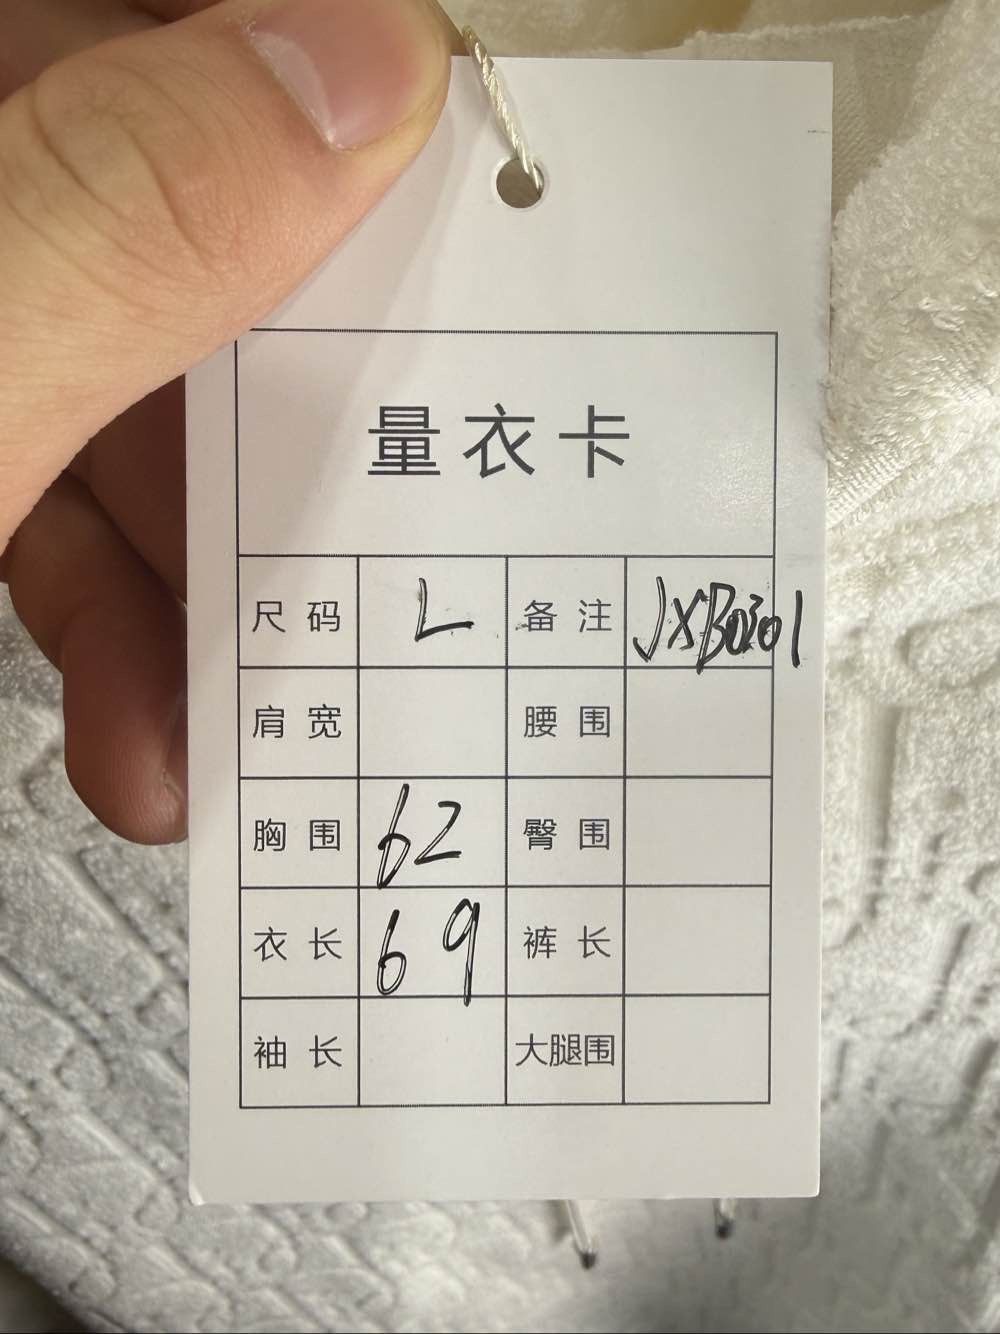 量衣卡
尺码 L 备注 JXB0301
肩宽 腰围
胸围 62 臀围
衣长 69 裤长
袖长 大腿围